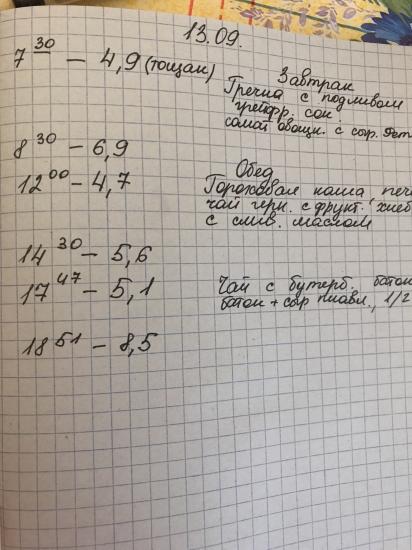 13.09.
7 30 – 4,9 (тощак)
Завтрак
Гречка с подливом
грейпфр. сок
салат овощн. с сыр.
8 30 – 6,9
12 00 – 4,7
Обед
Гороховая каша,
чай черн. с фрукт.,
с слив. маслом
14 30 – 5,6
17 47 – 5,1
Чай с бутерб. батон
батон + сыр плавл., 1/2
18 51 – 8,5